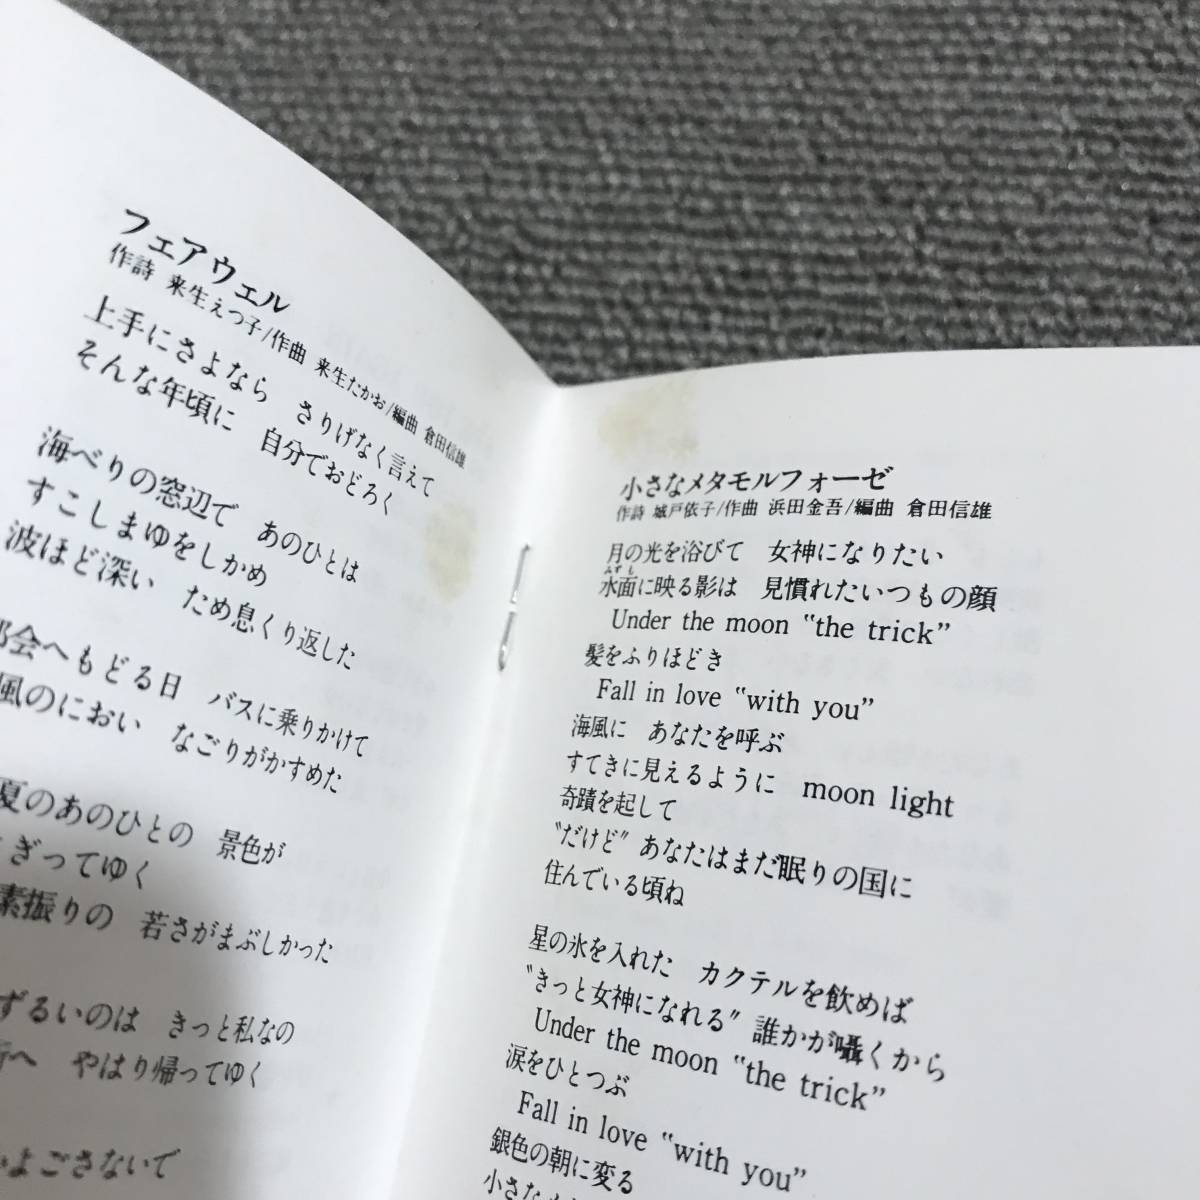 フェアウェル
作詩 来生えつ子/作曲 来生たかお/編曲 倉田信雄
上手にさよなら さりげなく言えて
そんな年頃に 自分でおどろく
海べりの窓辺で あのひとは
すこしまゆをしかめ
波ほど深い ため息くり返した
会へもどる日 バスに乗りかけて
風のにおい なごりがかすめた
夏のあのひとの 景色が
ぎってゆく
素振りの 若さがまぶしかった
ずるいのは きっと私なの
へ やはり帰ってゆく
よごさないで
小さなメタモルフォーゼ
作詩 城戸依子/作曲 浜田金吾/編曲 倉田信雄
月の光を浴びて 女神になりたい
みずも
水面に映る影は 見慣れたいつもの顔
Under the moon “the trick”
髪をふりほどき
Fall in love “with you”
海風に あなたを呼ぶ
すてきに見えるように moon light
奇蹟を起して
“だけど” あなたはまだ眠りの国に
住んでいる頃ね
星の氷を入れた カクテルを飲めば
“きっと女神になれる” 誰かが囁くから
Under the moon “the trick”
涙をひとつぶ
Fall in love “with you”
銀色の朝に変る
小さなメ